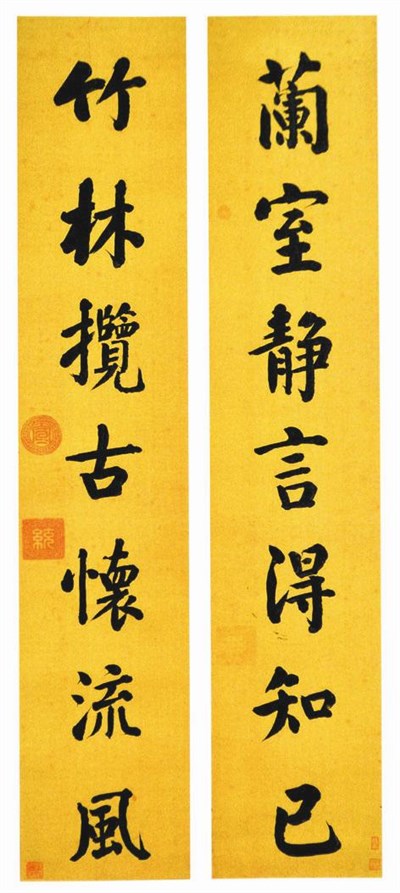 蘭室静言得知己
竹林攬古懷流風